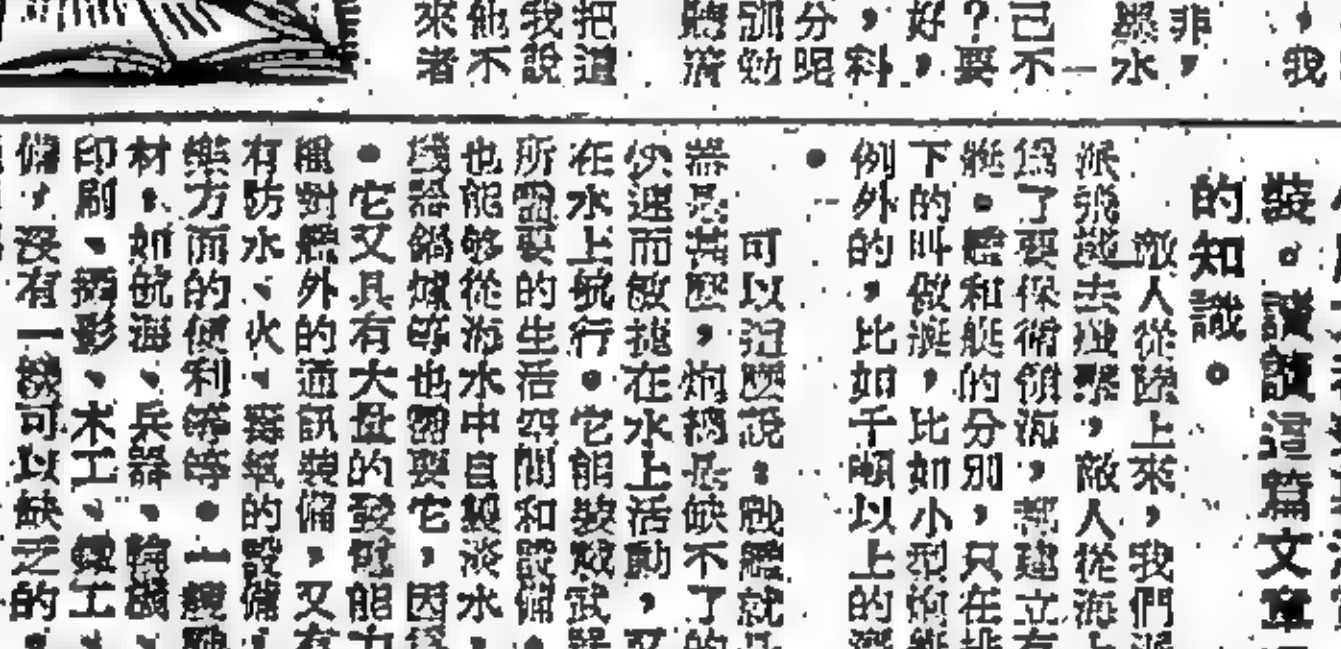 我
非，
水
己不
？要
好，
，料
分呢
訓勉
聽
把這
我說
他不
來者
裝。讀讀這篇文章
的知識。
敵人從陸上來，我們派
派飛機去迎擊，敵人從海上
為了要保衛領海，都建立有
艇。艦和艇的分別，只在排
下的叫做艇，比如小型炮艇
例外的，比如千噸以上的
。
可以這麼說：戰艦就是
器是甚麼，炮械是缺不了的
快速而敏捷在水上活動，又
在水上航行。它能裝成武器
所需要的生活空間和設備。
也能够從海水中自製淡水，
機器鍋爐等也需要它，因為
。它又具有大量的發電能力
艦對艦外的通訊裝備，又有
有防水、火、毒氣的設備
樂方面的便利等等。一艘
材，如航海、兵器、輪機、
印刷、攝影、木工、工、
備，沒有一機可以缺乏的。